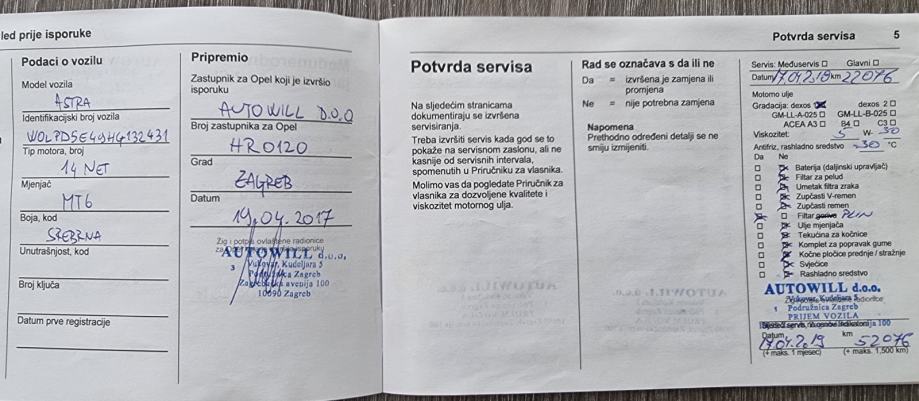 led prije isporuke
Podaci o vozilu
Model vozila
ASTRA
Identifikacijski broj vozila
W0LPD5E49HG132431
Tip motora, broj
14 NET
Mjenjač
MT6
Boja, kod
SREBRNA
Unutrašnjost, kod
Broj ključa
Datum prve registracije
Pripremio
Zastupnik za Opel koji je izvršio
isporuku
AUTOWILL D.O.O
Broj zastupnika za Opel
HR0120
Grad
ZAGREB
Datum
19.04.2017
Žig i potpis ovlaštene radionice
AUTOWILL d.o.o.
Vukovar, Kudeljara 5
3 Podružnica Zagreb
Zagrebačka avenija 100
10090 Zagreb
Potvrda servisa
Na sljedećim stranicama
dokumentiraju se izvršena
servisiranja.
Treba izvršiti servis kada god se to
pokaže na servisnom zaslonu, ali ne
kasnije od servisnih intervala,
spomenutih u Priručniku za vlasnika.
Molimo vas da pogledate Priručnik za
vlasnika za dozvoljene kvalitete i
viskozitet motornog ulja.
Rad se označava s da ili ne
Da = izvršena je zamjena ili
promjena
Ne = nije potrebna zamjena
Napomena
Prethodno određeni detalji se ne
smiju izmijeniti.
Potvrda servisa 5
Servis: Međuservis Glavni
Datum 17.04.2.19 km 22076
Motorno ulje
Gradacija: dexos dexos 2
GM-LL-A-025 GM-LL-B-025
ACEA A3 B4 C3
Viskozitet: 5 W- 30
Antifriz, rashladno sredstvo -30 °C
Da Ne
Baterija (daljinski upravljač)
Filtar za pelud
Umetak filtra zraka
Zupčasti V-remen
Zupčasti remen
Filtar goriva PLIN
Ulje mjenjača
Tekućina za kočnice
Komplet za popravak gume
Kočne pločice prednje / stražnje
Svjećice
Rashladno sredstvo
AUTOWILL d.o.o.
Vukovar, Kudeljara 5
1 Podružnica Zagreb
PRIJEM VOZILA
Datum km
17.04.2.19 52076
(+ maks. 1 mjesec) (+ maks. 1,500 km)